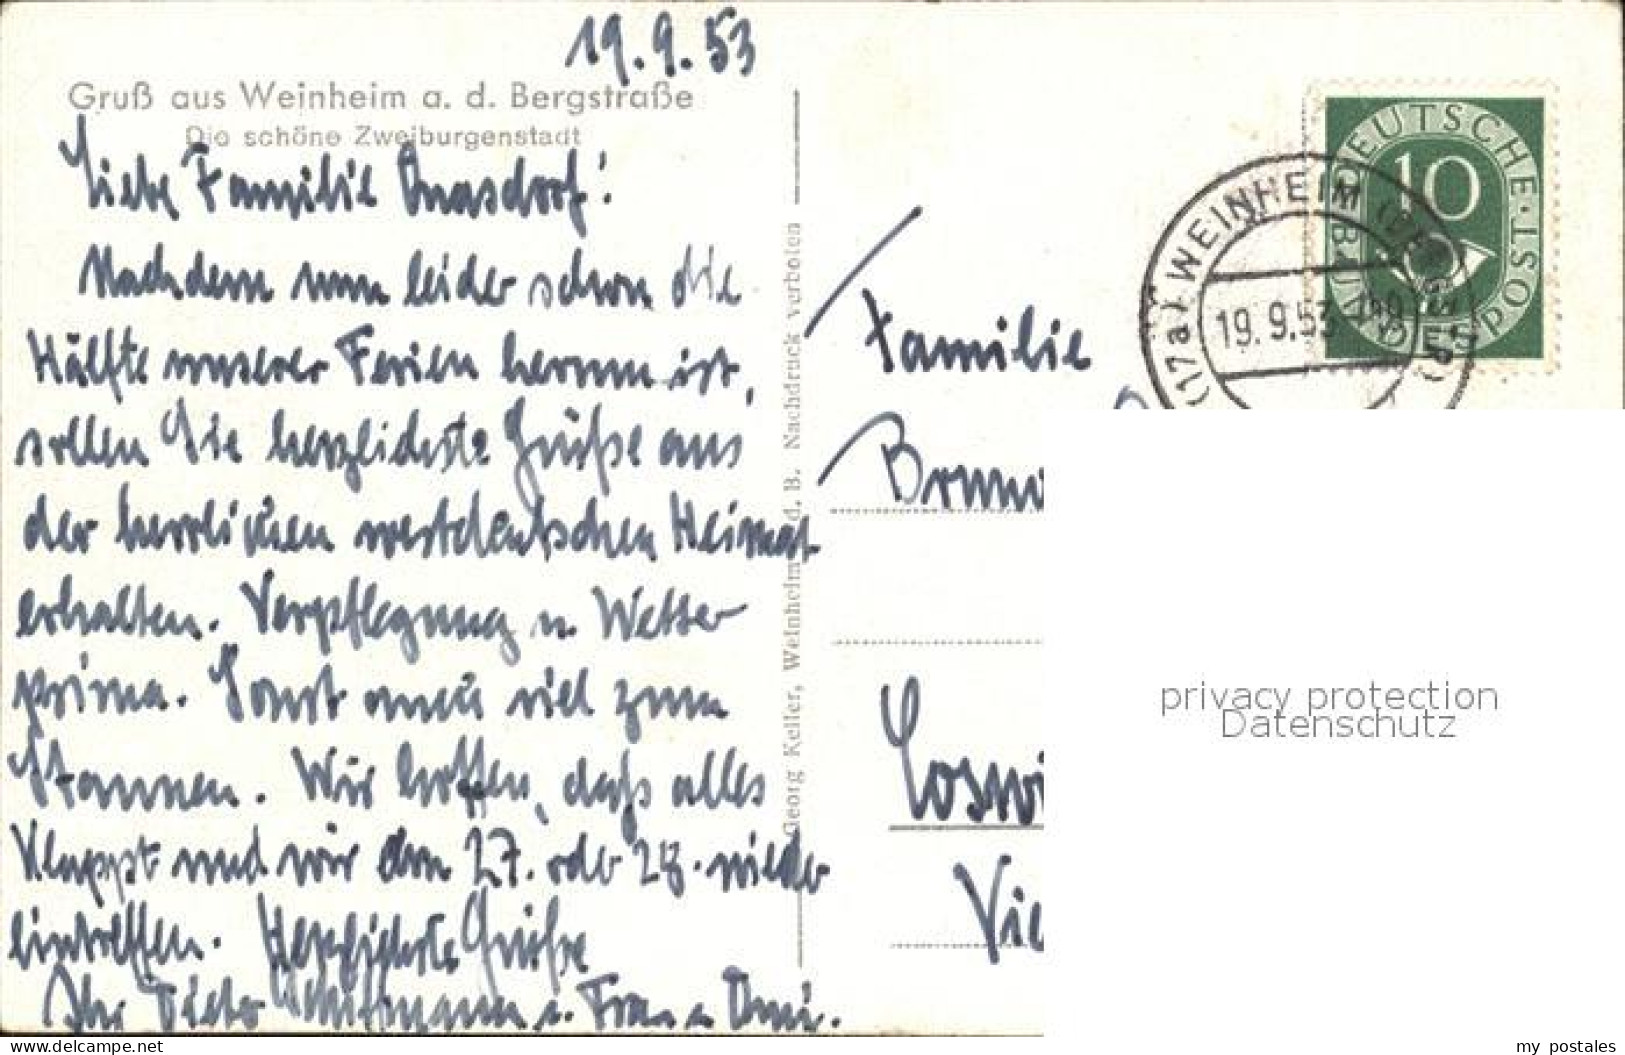 19.9.53
Gruß aus Weinheim a. d. Bergstraße
Die schöne Zweiburgenstadt
Liebe Familie
Nachdem nun leider schon die
Hälfte unserer Ferien herum ist,
sollen Sie herzlichste Grüße aus
der herrlichen westdeutschen Heimat
erhalten. Verpflegung u. Wetter
prima. Sonst viel zum
Staunen. Wir hoffen, daß alles
klappt und wir am 27. oder 28. wieder
eintreffen. Herzlichste Grüße
Ihr u. Frau u.
Georg Keller, Weinheim a. d. B. Nachdruck verboten
DEUTSCHE BUNDESPOST
10
(17a) WEINHEIM
19.9.53
Familie
privacy protection
Datenschutz
www.delcampe.net
my_postales